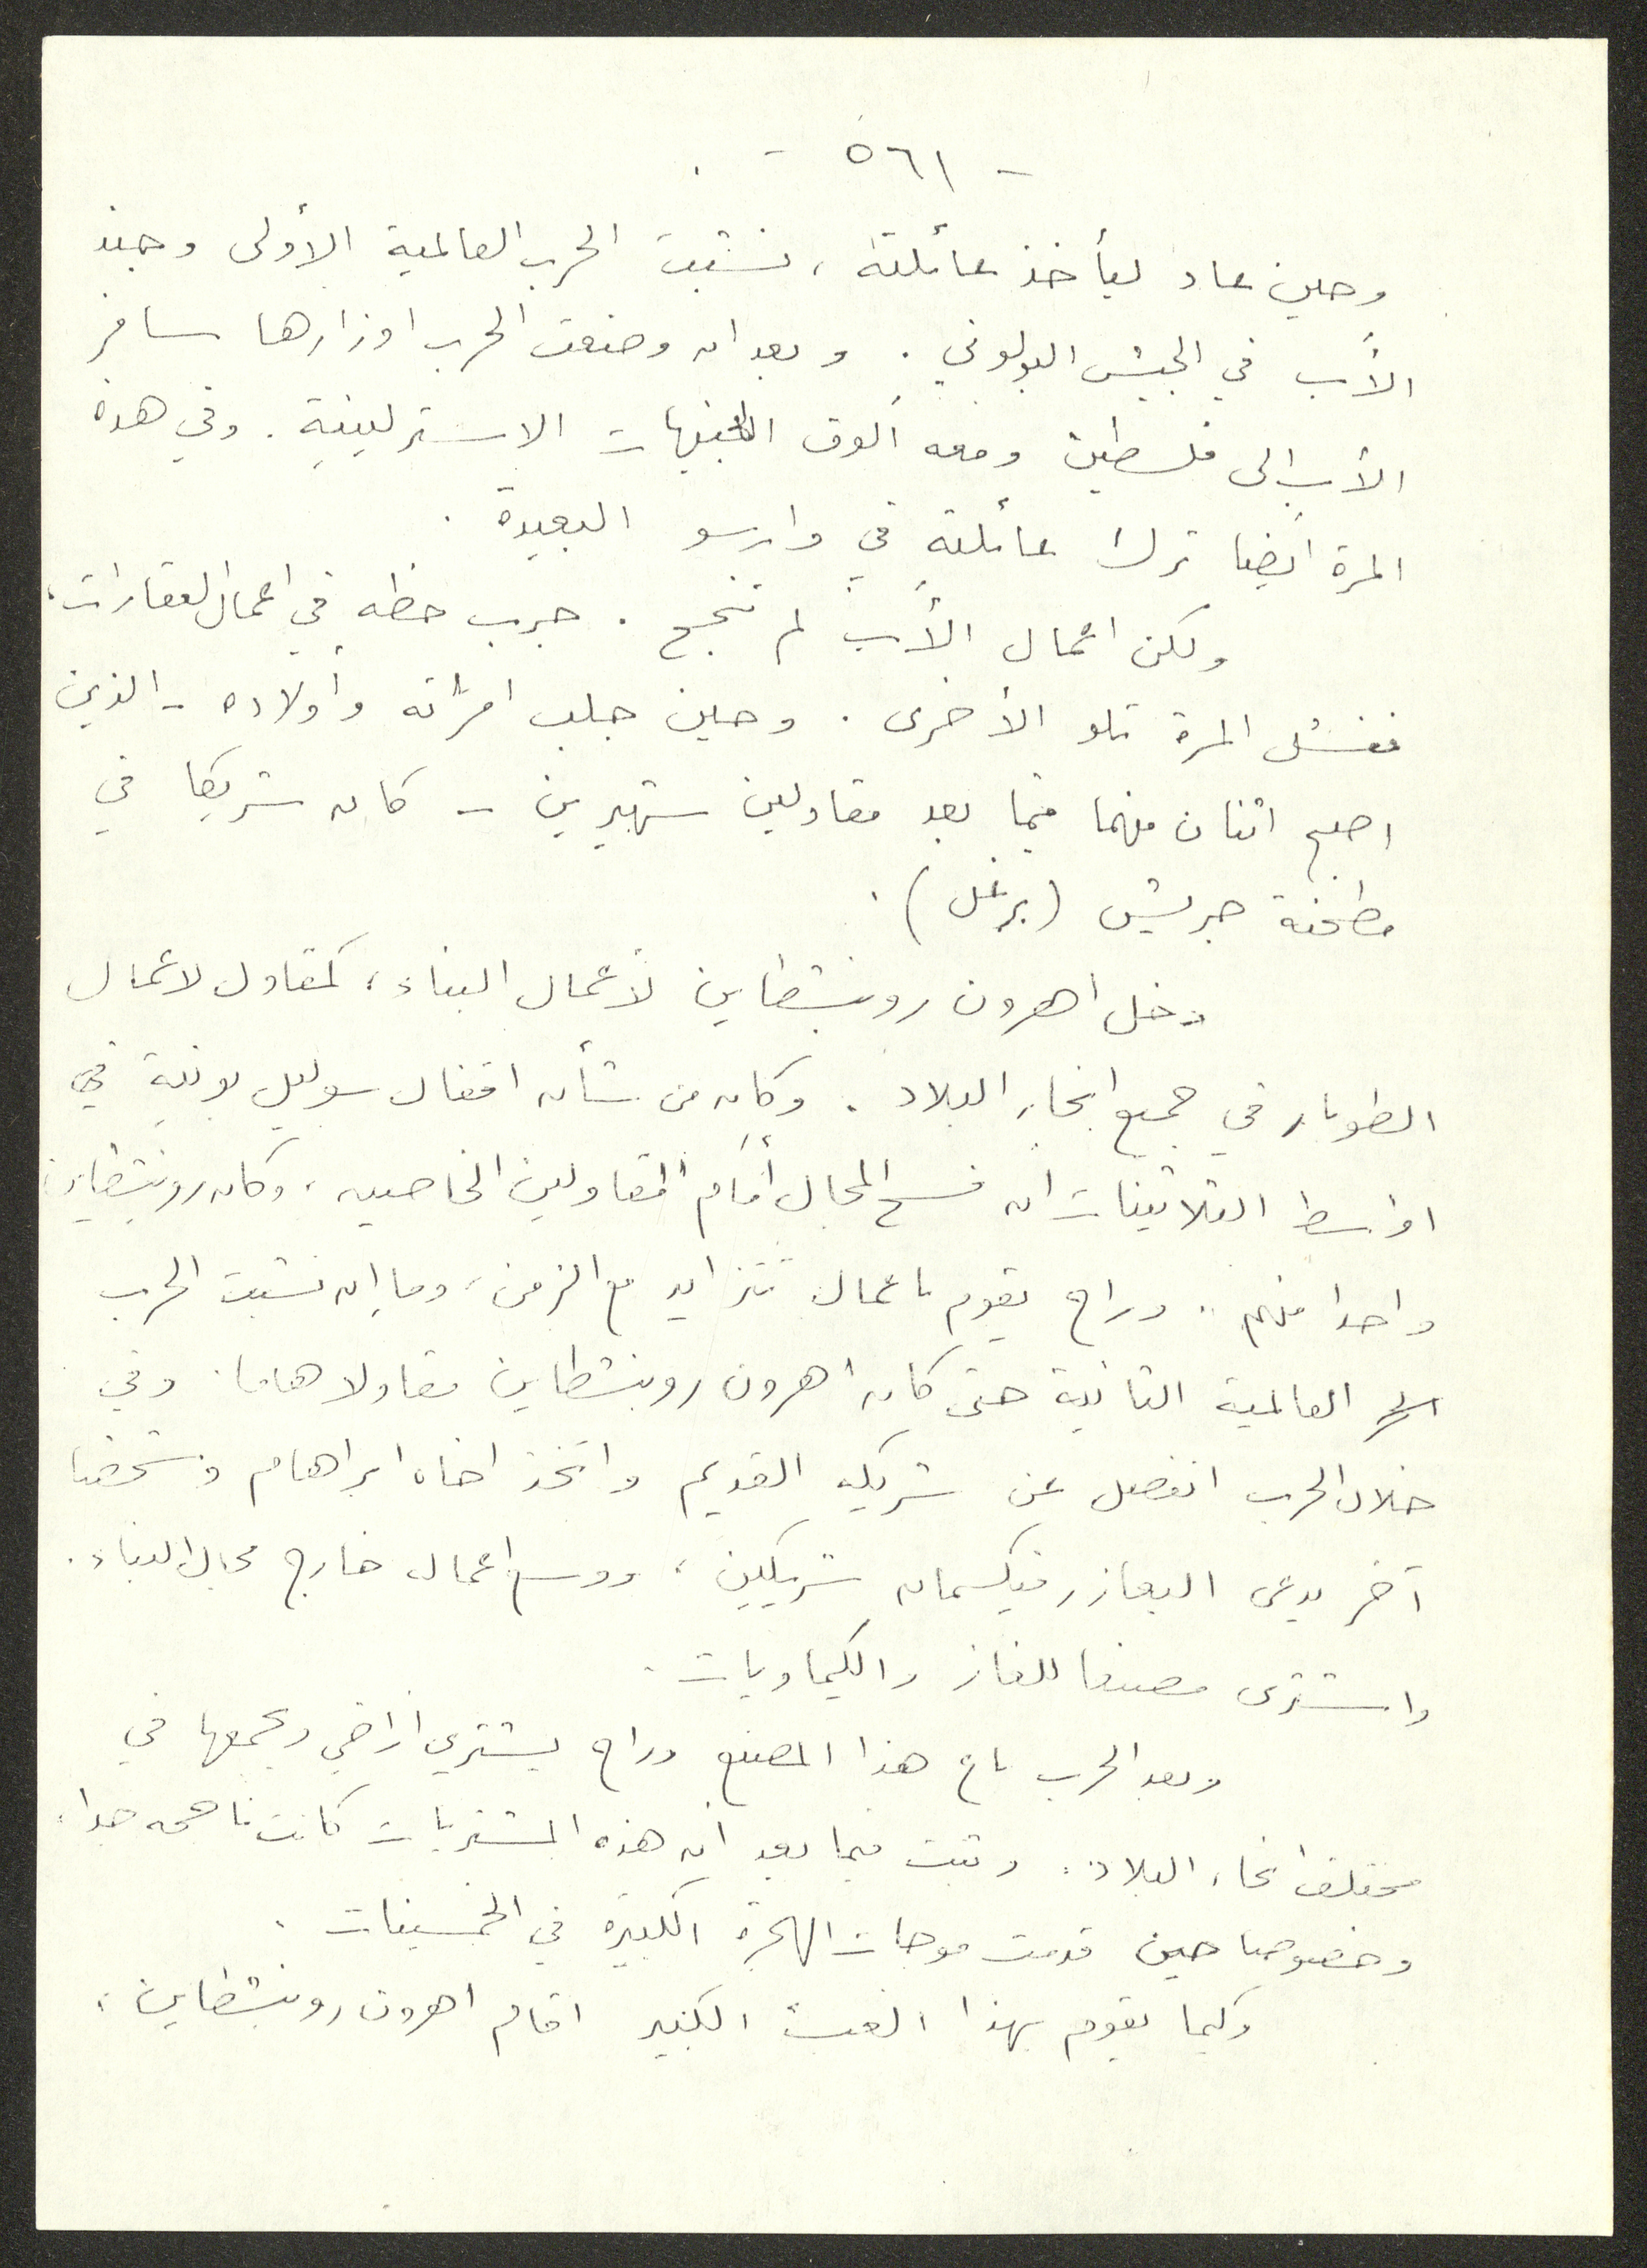 - ٥٦١ - .
وحين عاد ليأخذ عائلته، نشبت الحرب العالمية الأولى وجند
الأب في الجيش البولوني . وبعد ان وضعت الحرب اوزارها سافر
الأب الى فلسطين ومعه ألوف الجنيهات الاسترلينية . وفي هذه
المرة أيضا ترك عائلته في وارسو البعيدة .
ولكن اعمال الأب لم تنجح . جرب حظه في اعمال العقارات،
ففشل المرة تلو الأخرى . وحين جلب امرأته وأولاده - الذين
اصبح اثنان منهما فيما بعد مقاولين شهيرين - كان شريكا في
مطحنة جريش (برغل) .
دخل اهرون روبنشطاين لأعمال البناء، كمقاول لاعمال
الطوبار في جميع انحاء البلاد . وكان من شأن اقفال سوليل بونيه في
اواسط الثلاثينات ان فسح المجال أمام المقاولين الخاصين، وكان روبنشطاين
واحدا منهم . وراح يقوم باعمال تتزايد مع الزمن، وما ان نشبت الحرب
العالمية الثانية حتى كان اهرون روبنشطاين مقاولا هاما . وفي
خلال الحرب انفصل عن شريكه القديم واتخذ اخاه ابراهام وشخصا
آخر يدعى اليعازر فيكسمان شريكين، ووسع اعماله خارج مجال البناء .
واشترى مصنعا للغاز والكيماويات .
وبعد الحرب باع هذا المصنع وراح يشتري اراضي ويجمعها في
مختلف انحاء البلاد . وثبت فيما بعد ان هذه المشتريات كانت ناجحه جدا،
وخصوصا حين قدمت موجات الهجرة الكبيرة في الخمسينات .
وكيما يقوم بهذا العبث الكبير اقام اهرون روبنشطاين،